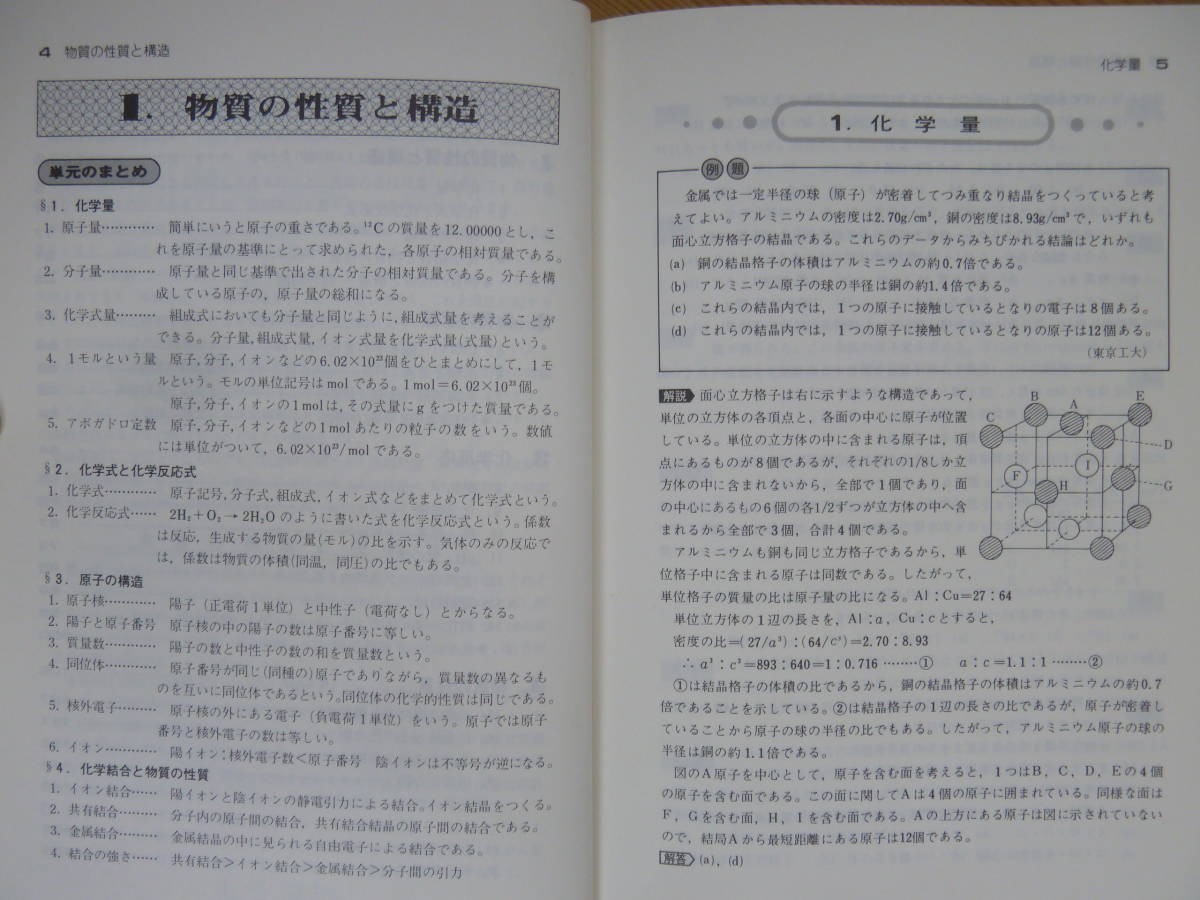 4 物質の性質と構造
1. 物質の性質と構造
単元のまとめ
§1. 化学量
1. 原子量………… 簡単にいうと原子の重さである。¹²Cの質量を12.00000とし，こ
れを原子量の基準にとって求められた，各原子の相対質量である。
2. 分子量………… 原子量と同じ基準で出された分子の相対質量である。分子を構
成している原子の，原子量の総和になる。
3. 化学式量……… 組成式においても分子量と同じように，組成式量を考えることが
できる。分子量，組成式量，イオン式量を化学式量(式量)という。
4. 1モルという量 原子，分子，イオンなどの6.02×10²³個をひとまとめにして，1モ
ルという。モルの単位記号はmolである。1mol=6.02×10²³個。
原子，分子，イオンの1molは，その式量にgをつけた質量である。
5. アボガドロ定数 原子，分子，イオンなどの1molあたりの粒子の数をいう。数値
には単位がついて，6.02×10²³/molである。
§2. 化学式と化学反応式
1. 化学式………… 原子記号，分子式，組成式，イオン式などをまとめて化学式という。
2. 化学反応式…… 2H₂+O₂→2H₂Oのように書いた式を化学反応式という。係数
は反応，生成する物質の量(モル)の比を示す。気体のみの反応で
は，係数は物質の体積(同温，同圧)の比でもある。
§3. 原子の構造
1. 原子核………… 陽子（正電荷1単位）と中性子（電荷なし）とからなる。
2. 陽子と原子番号 原子核の中の陽子の数は原子番号に等しい。
3. 質量数………… 陽子の数と中性子の数の和を質量数という。
4. 同位体………… 原子番号が同じ(同種の)原子でありながら，質量数の異なるも
のを互いに同位体であるという。同位体の化学的性質は同じである。
5. 核外電子……… 原子核の外にある電子（負電荷1単位）をいう。原子では原子
番号と核外電子の数は等しい。
6. イオン………… 陽イオン：核外電子数＜原子番号 陰イオンは不等号が逆になる。
§4. 化学結合と物質の性質
1. イオン結合…… 陽イオンと陰イオンの静電引力による結合。イオン結晶をつくる。
2. 共有結合……… 分子内の原子間の結合，共有結合結晶の原子間の結合である。
3. 金属結合……… 金属結晶の中に見られる自由電子による結合である。
4. 結合の強さ…… 共有結合＞イオン結合＞金属結合＞分子間の引力
化学量 5
1. 化学量
例題
金属では一定半径の球（原子）が密着してつみ重なり結晶をつくっていると考
えてよい。アルミニウムの密度は2.70g/cm³，銅の密度は8.93g/cm³で，いずれも
面心立方格子の結晶である。これらのデータからみちびかれる結論はどれか。
(a) 銅の結晶格子の体積はアルミニウムの約0.7倍である。
(b) アルミニウム原子の球の半径は銅の約1.4倍である。
(c) これらの結晶内では，1つの原子に接触しているとなりの電子は8個ある。
(d) これらの結晶内では，1つの原子に接触しているとなりの原子は12個ある。
（東京工大）
解説 面心立方格子は右に示すような構造であって，
単位の立方体の各頂点と，各面の中心に原子が位置
している。単位の立方体の中に含まれる原子は，頂
点にあるものが8個であるが，それぞれの1/8しか立
方体の中に含まれないから，全部で1個であり，面
の中心にあるもの6個の各1/2ずつが立方体の中へ含
まれるから全部で3個，合計4個である。
アルミニウムも銅も同じ立方格子であるから，単
位格子中に含まれる原子は同数である。したがって，
単位格子の質量の比は原子量の比になる。Al：Cu=27：64
単位立方体の1辺の長さを，Al：a，Cu：cとすると，
密度の比=(27/a³)：(64/c³)=2.70：8.93
∴ a³：c³=893：640=1：0.716………① a：c=1.1：1………②
①は結晶格子の体積の比であるから，銅の結晶格子の体積はアルミニウムの約0.7
倍であることを示している。②は結晶格子の1辺の長さの比であるが，原子が密着し
ていることから原子の球の半径の比でもある。したがって，アルミニウム原子の球の
半径は銅の約1.1倍である。
図のA原子を中心として，原子を含む面を考えると，1つはB，C，D，Eの4個
の原子を含む面である。この面に関してAは4個の原子に囲まれている。同様な面は
F，Gを含む面，H，Iを含む面である。Aの上方にある原子は図に示されていない
ので，結局Aから最短距離にある原子は12個である。
解答 (a)，(d)
B
A
E
C
D
F
I
H
G